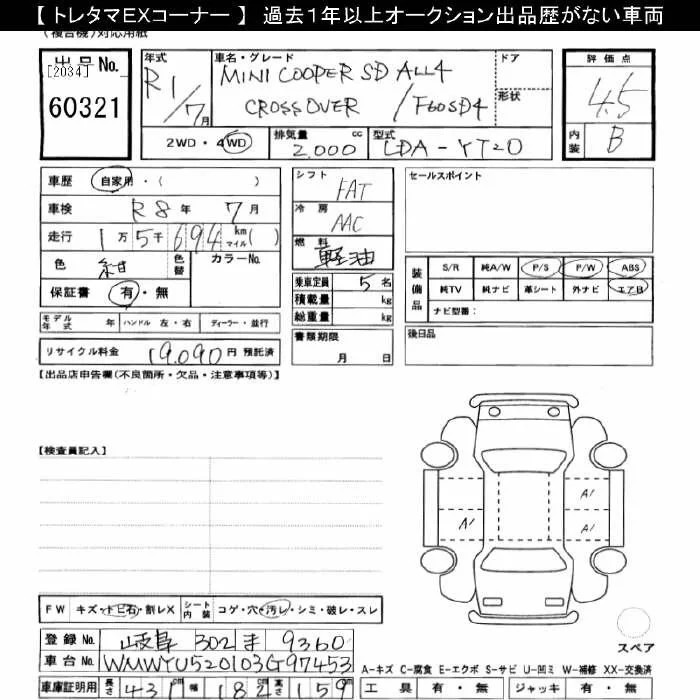 【 トレタマEXコーナー 】 過去1年以上オークション出品歴がない車両
(複合機)対応用紙
出品No.
[2034]
60321
年式 車名・グレード ドア
R1/7月 MINI COOPER SD ALL4
CROSSOVER /F60SD4 形状
2WD・4WD 排気量 2.000 cc 型式 LDA-YT20
評価点
4.5
内装 B
車歴 自家用・( )
車検 R8年 7月
走行 1万5千694 km マイル( )
色 紺 色替 カラーNo.
保証書 有・無
シフト FAT
冷房 AAC
燃料 軽油
乗車定員 5名
積載量 kg
総重量 kg
セールスポイント
装備品 S/R 純A/W P/S P/W ABS
純TV 純ナビ 革シート 外ナビ エアB
ナビ型番:
モデル年式 年 ハンドル 左・右 ディーラー・並行
リサイクル料金 19,090円 預託済
書類期限
月 日
後日品
【出品店申告欄(不良箇所・欠品・注意事項等)】
【検査員記入】
A1
A1
A1
FW キズ・トビ石・割レX シート内装 コゲ・穴・汚レ・シミ・破レ・スレ
登録No. 岐阜 302 ま 9360
車台No. WMWYU520103G97453
車庫証明用 長さ 431 幅 182 高さ 159
スペア
A-キズ C-腐食 E-エクボ S-サビ U-凹ミ W-補修 XX-交換済
工具 有・無 ジャッキ 有・無